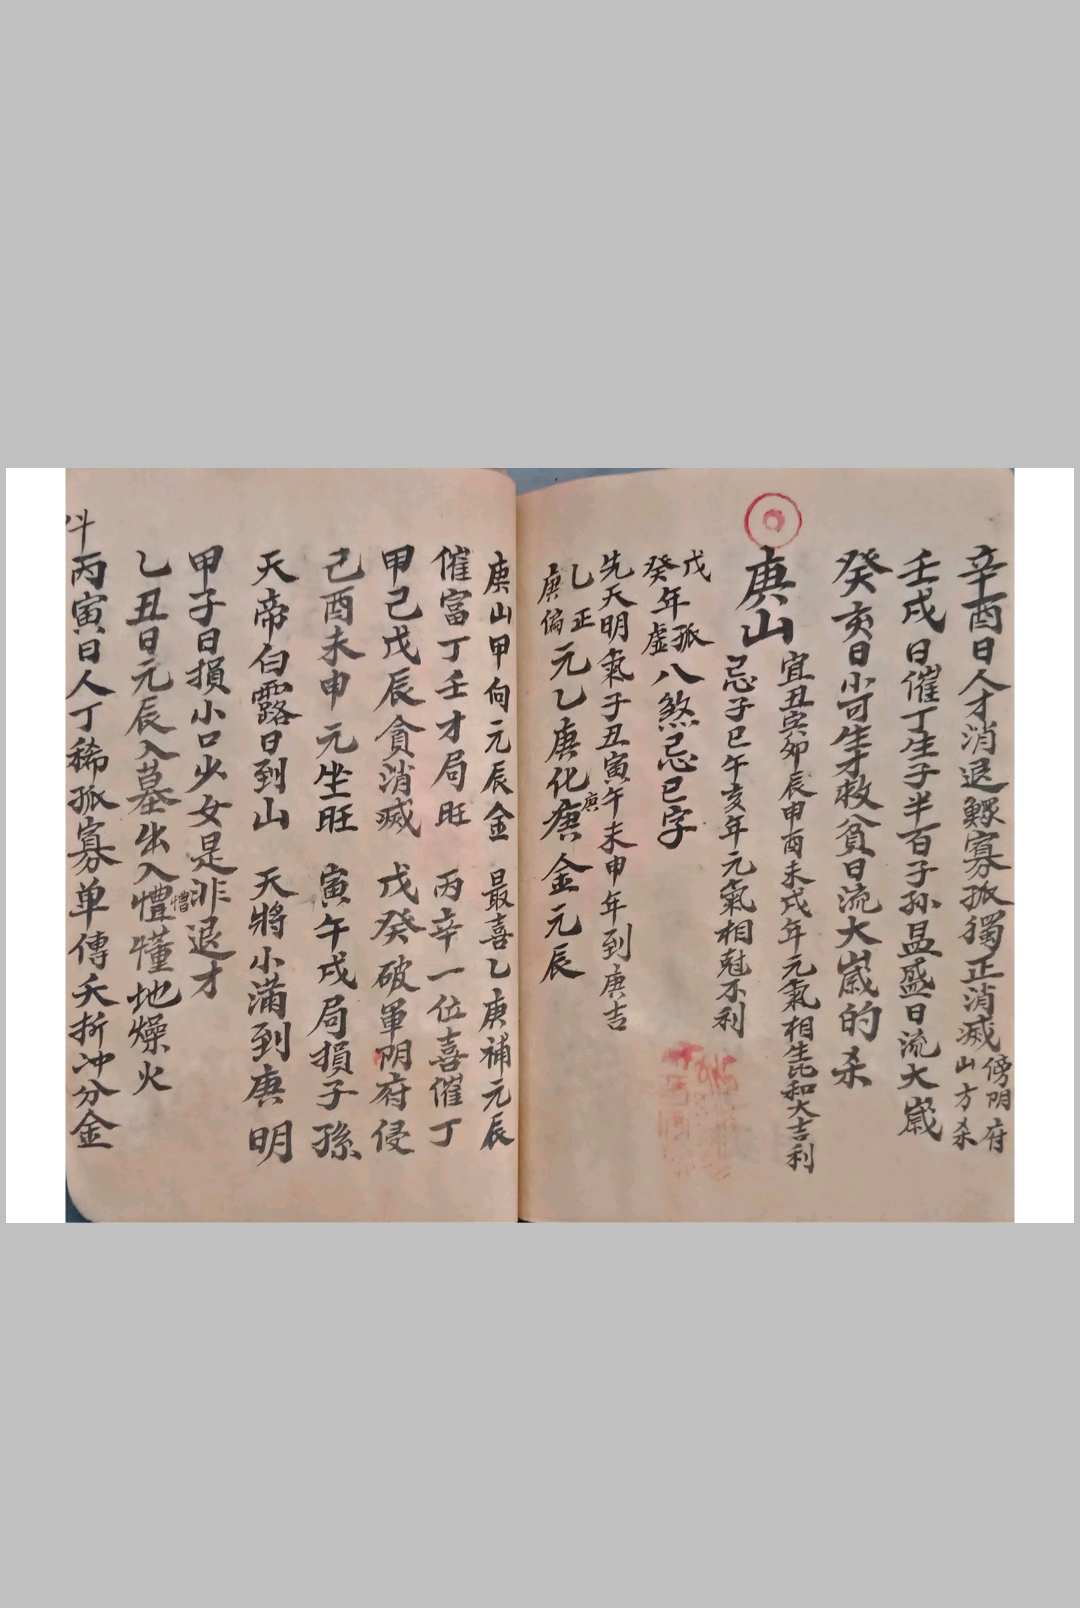 辛酉日人才消退鰥寡孤獨正消滅傍阴府山方杀
壬戌日催丁生子半百子孙昌盛日流大嵗
癸亥日小可生才救貧日流大嵗的杀
庚山
宜丑寅卯辰申酉未戌年元氣相生比和大吉利
忌子巳午亥年元氣相尅不利
戊癸年孤虚八煞忌巳字
先天明氣子丑寅午未申年到庚吉
乙正庚偏元乙庚化庚金元辰
庚山甲向元辰金 最喜乙庚補元辰
催富丁壬才局旺 丙辛一位喜催丁
甲己戊辰貪消滅 戊癸破軍阴府侵
己酉未申元坐旺 寅午戌局損子孫
天帝白露日到山 天將小滿到庚明
甲子日損小口少女是非退才
乙丑日元辰入墓出入懵懂地燥火
丙寅日人丁稀孤寡单傳夭折冲分金